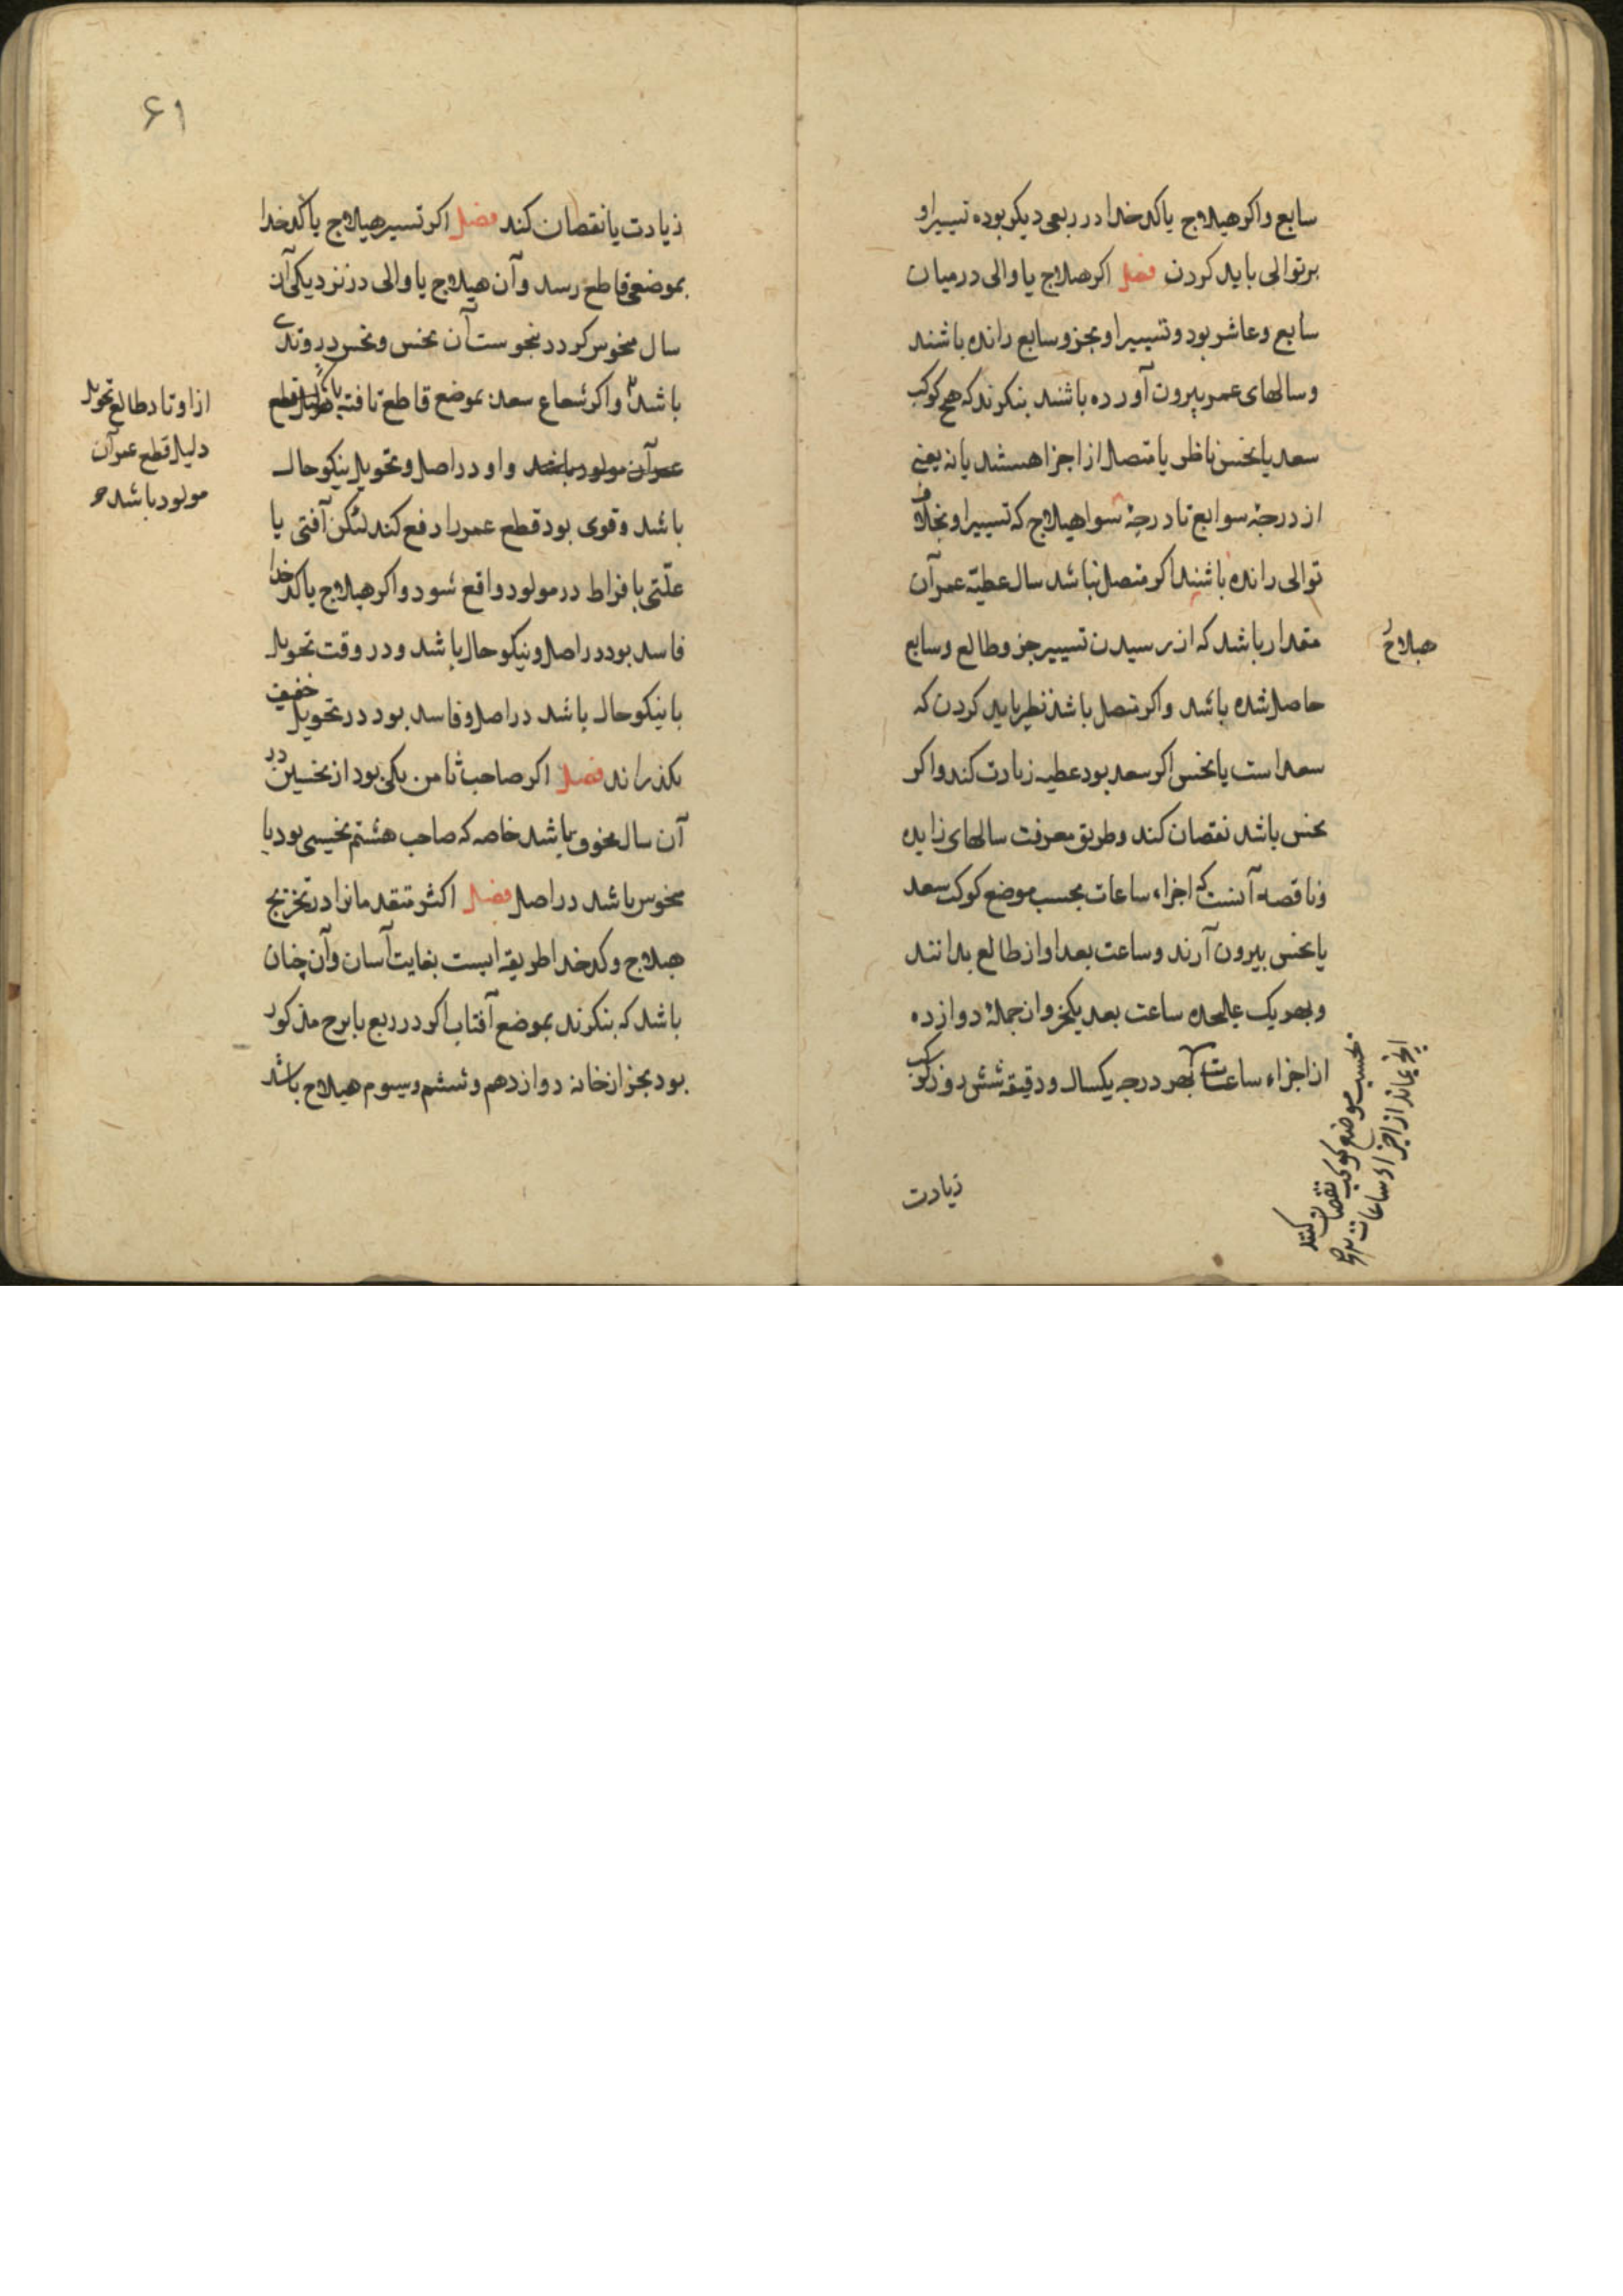 سابع واکر هیلاج یا کدخدا در ربعی دیکر بوده تسییر او
بر توالی باید کردن فصل اکر هیلاج یا والی در میان
سابع و عاشر بود و تسییر او بجزو سابع رانده باشند
و سالهای عمر بیرون آورده باشند بنکرند که هیچ کوکب
سعد یا نحس ناظر یا متصل از اجزا هستند یا نه یعنی
از درجهٔ سوابع تا درجهٔ سوا هیلاج که تسییر او بخلاف
توالی رانده باشند اکر متصل نباشد سال عطیّه عمر آن
هیلاج
مقدار باشد که از رسیدن تسییر جزو طالع و سابع
حاصل شده باشد واکر متصل باشد نظر باید کردن که
سعد است یا نحس اکر سعد بود عطیه زیادت کند واکر
نحس باشد نقصان کند و طریق معرفت سالهای زایده
و ناقصه آنست که اجزاء ساعات بحسب موضع کوکب سعد
یا نحس بیرون آرند و ساعت بعد او از طالع بدانند
و بهر یک علیحده ساعت بعد یکجزو از جملهٔ دوازده
از اجزاء ساعات بهر درجه یکسال و دقیقه شش روز
آنچ بماند از اجزاء ساعات
بحسب موضع کوکب نقصان کنند
زیادت
۶۱
زیادت یا نقصان کند فصل اکر تسییر هیلاج یا کدخدا
بموضعی قاطع رسد و آن هیلاج یا والی در نزدیکی آن
سال منحوس کردد بنحوست آن نحس و نحس در وتدی
باشد واکر شعاع سعد بموضع قاطع تافته باشد دلیل قطع
از اوتاد طالع تحویل
دلیل قطع عمر آن
مولود باشد
عمر آن مولود باشد و او در اصل و تحویل نیکو حال
باشد و قوی بود قطع عمر را دفع کند لیکن آفتی یا
علّتی بافراط در مولود واقع شود واکر هیلاج یا کدخدا
فاسد بود در اصل و نیکو حال باشد و در وقت تحویل
یا نیکو حال باشد در اصل و فاسد بود در تحویل خفیف
بکذراند فصل اکر صاحب ثامن یکی بود از نحسین در
آن سال مخوف باشد خاصه که صاحب هشتم نحیسی بود یا
منحوس باشد در اصل فصل اکثر متقدمانرا در تخریج
هیلاج و کدخدا طریقه ایست بغایت آسان و آن چنان
باشد که بنکرند بموضع آفتاب اکر در ربع یا برج مذکور
بود بجز از خانه دوازدهم و ششم و سیوم هیلاج باشد